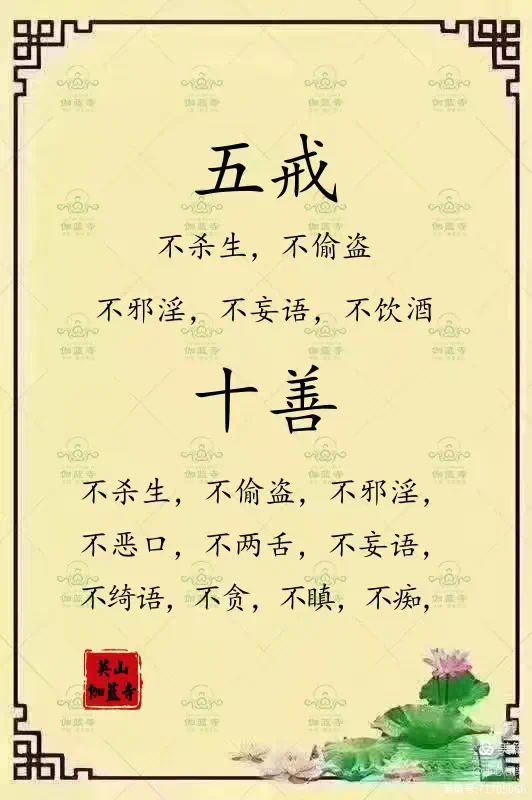 五戒
不杀生，不偷盗
不邪淫，不妄语，不饮酒
十善
不杀生，不偷盗，不邪淫，
不恶口，不两舌，不妄语，
不绮语，不贪，不瞋，不痴，
英山
伽蓝寺
伽蓝寺